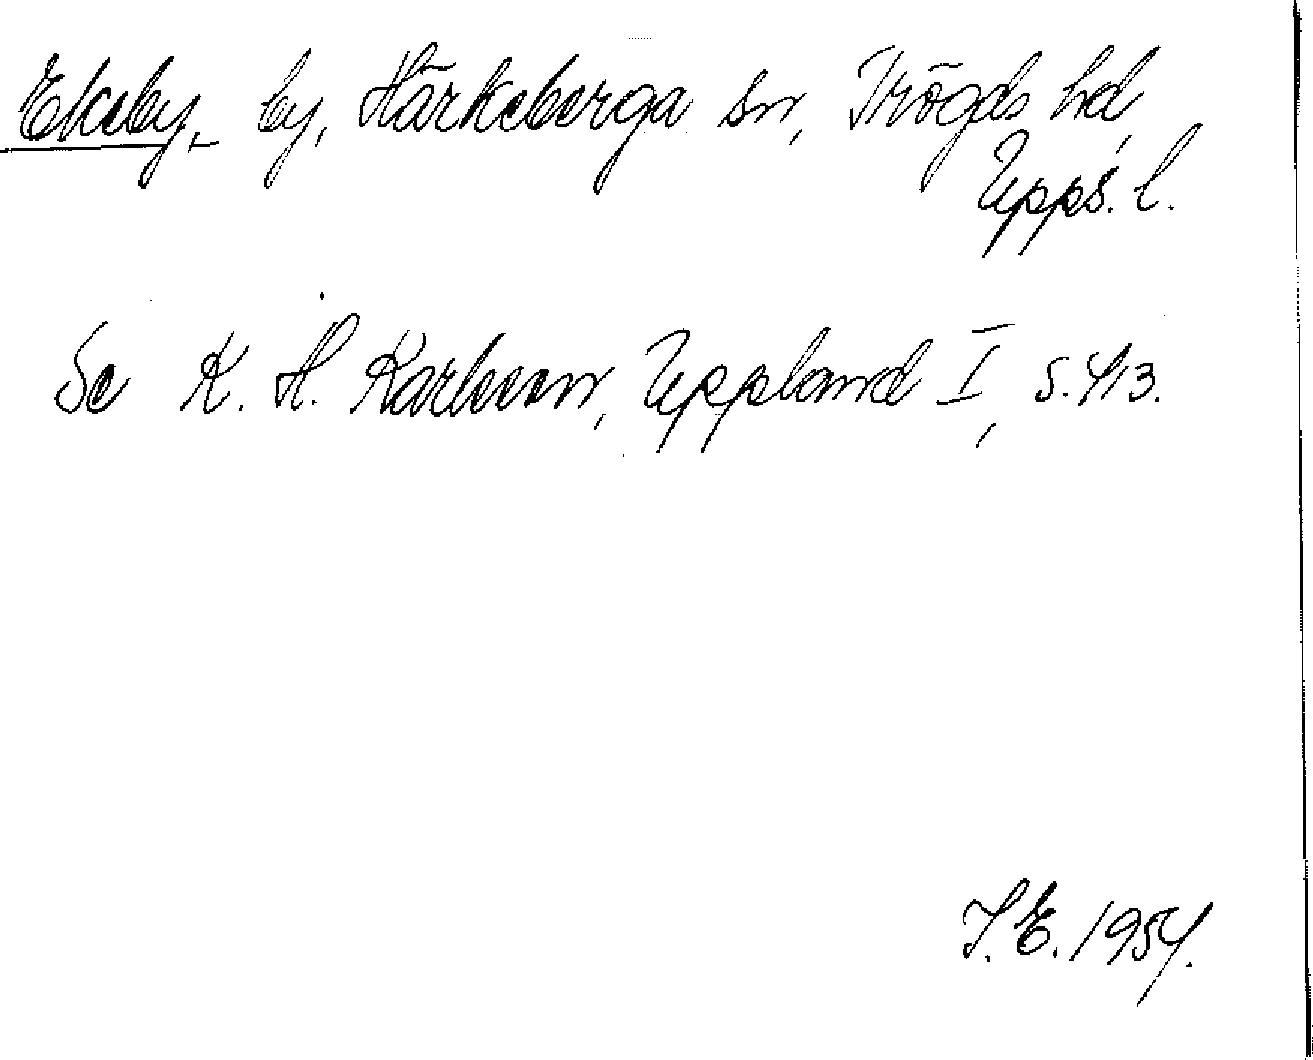 Ekeby, by, Härkeberga sn, Trögds hd,
Upps. l.
Se K. H. Karlsson, Uppland I, s. 413.
I. E. 1954.